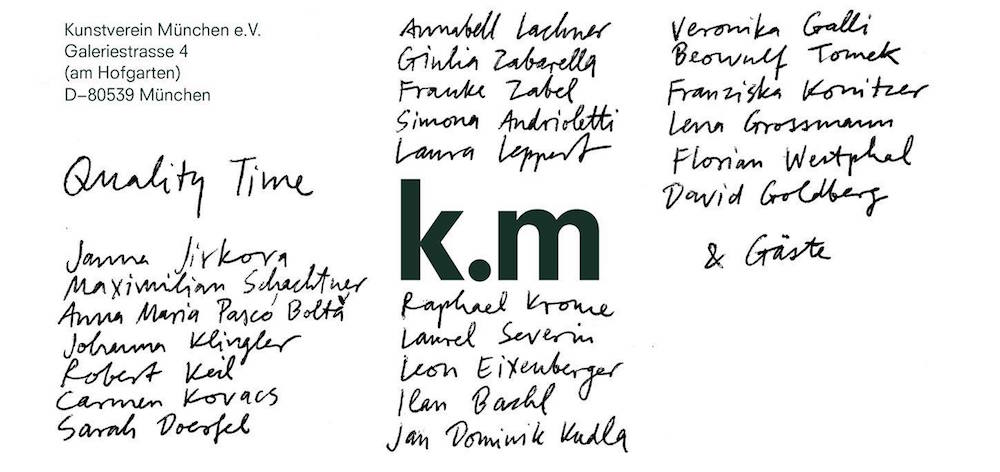 Kunstverein München e.V.
Galeriestrasse 4
(am Hofgarten)
D–80539 München
Quality Time
Janna Jirkova
Maximilian Schachtner
Anna Maria Pascó Boltà
Johanna Klingler
Robert Keil
Carmen Kovacs
Sarah Doerfel
Annabell Lachner
Giulia Zabarella
Frauke Zabel
Simona Andrioletti
Laura Leppert
k.m
Raphael Krome
Laurel Severin
Leon Eixenberger
Ilan Bachl
Jan Dominik Kudla
Veronika Galli
Beowulf Tomek
Franziska Konitzer
Lena Grossmann
Florian Westphal
David Goldberg
& Gäste